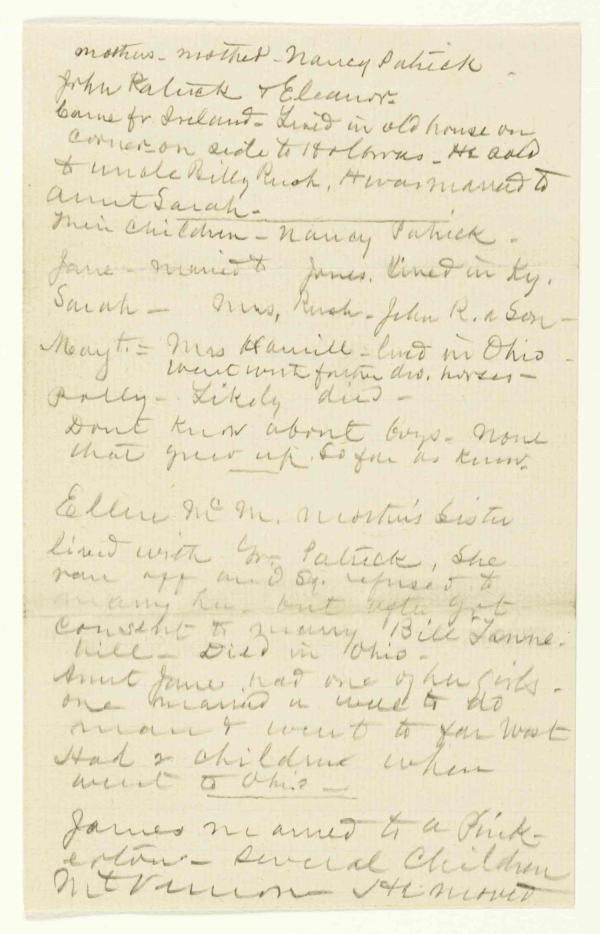 mothers - mother - Nancy Patrick
John Patrick & Eleanor -
Came fr Ireland - Lived in old house on
corner - on side to - He sold
to uncle Billy Rush, He was married to
Aunt Sarah -
Their Children - Nancy Patrick -
Jane - married to Jones. lived in Ky.
Sarah - Mrs, Rush - John R. a Son -
Mrs Hamill - lived in Ohio -
went with father horses -
Polly - Likely died -
Dont know about boys - none
that grew up. So far as know.
Ellen Mc M. Mother's Sister
lived with Gr. Patrick, She
ran off and Sq. refused to
marry her - but after got
consent to marry Bill Tanne-
hill - Died in Ohio -
Aunt Jane had one of her girls -
one married a well to do
man & went to far West
Had 2 children when
went to Ohio -
James married to a Pink-
erton - several Children
Mt Vernon - He moved